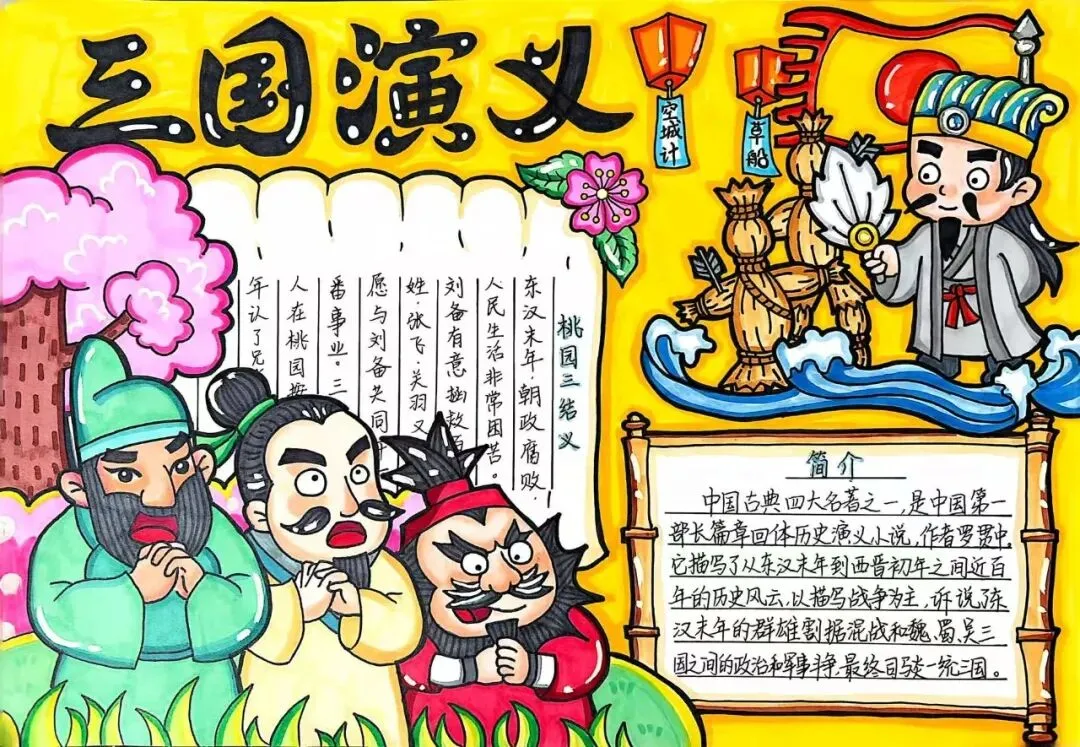 三国演义
空城计
草船
桃园三结义
东汉末年,朝政腐败,
人民生活非常困苦。
刘备有意拯救
姓,张飞、关羽又
愿与刘备共同
番事业。三
人在桃园
年认了
简介
中国古典四大名著之一,是中国第一
部长篇章回体历史演义小说,作者罗贯中,
它描写了从东汉末年到西晋初年之间近百
年的历史风云,以描写战争为主,诉说了东
汉末年的群雄割据混战和魏、蜀、吴三
国之间的政治和军事斗争,最终司马炎一统三国。